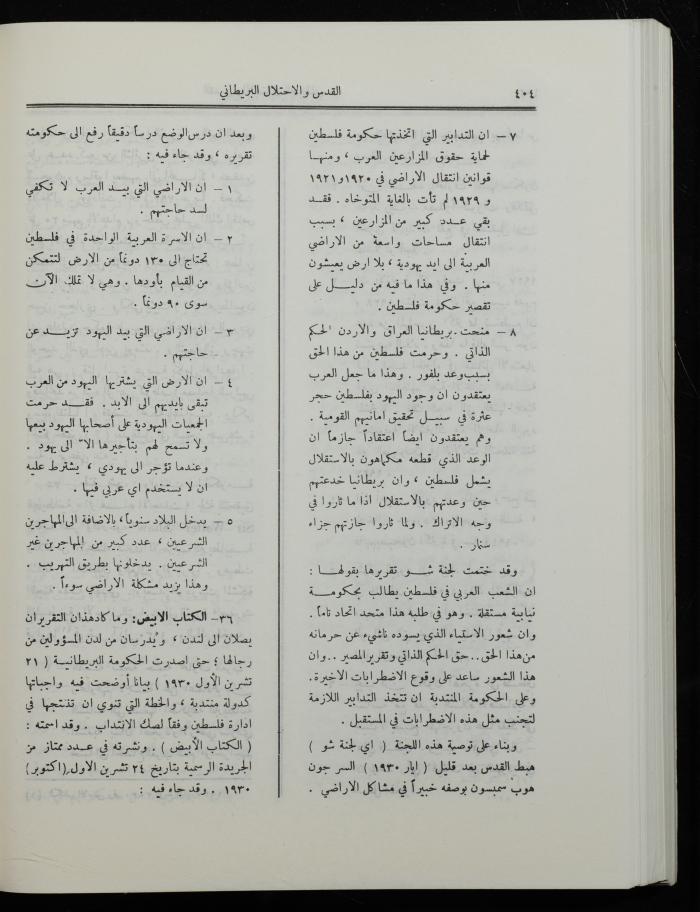 ٤٠٤
القدس والاحتلال البريطاني
٧ – ان التدابير التي اتخذتها حكومة فلسطين
لحماية حقوق المزارعين العرب ، ومنهـا
قوانين انتقال الاراضي في ١٩٢٠و١٩٢١
و ١٩٢٩ لم تأت بالغاية المتوخاه . فقـد
بقي عـدد كبير من المزارعين ، بسبب
انتقال مساحات واسعة من الاراضي
العربية الى ايد يهودية ، بلا ارض يعيشون
منها . وفي هذا ما فيه من دليـل على
تقصير حكومة فلسطين .
٨ – منحت بريطانيا العراق والاردن الحكم
الذاتي . وحرمت فلسطين من هذا الحق
بسبب وعد بلفور . وهذا ما جعل العرب
يعتقدون ان وجود اليهود بفلسطين حجر
عثرة في سبيـل تحقيق امانيهم القومية .
وهم يعتقدون ايضاً اعتقاداً جازماً ان
الوعد الذي قطعه مكماهون بالاستقلال
يشمل فلسطين ، وان بريطانيا خدعتهم
حين وعدتهم بالاستقلال اذا ما ثاروا في
وجه الاتراك . ولما ثاروا جازتهم جزاء
سنمار .
وقد ختمت لجنة شـو تقريرها بقولهـا :
ان الشعب العربي في فلسطين يطالب بحكومـة
نيابية مستقلة . وهو في طلبه هذا متحد اتحاد تاماً .
وان شعور الاستياء الذي يسوده ناشيء عن حرمانه
من هذا الحق .. حق الحكم الذاتي وتقرير المصير .. وان
هذا الشعور ساعد على وقوع الاضطرابات الاخيرة.
وعلى الحكومة المنتدبة ان تتخذ التدابير اللازمة
لتجنب مثل هذه الاضطرابات في المستقبل .
وبناء على توصية هذه اللجنة ( اي لجنة شو )
هبط القدس بعد قليل ( ايار ١٩٣٠ ) السر جون
هوب سمبسون بوصفه خبيراً في مشاكل الاراضي .
وبعد ان درس الوضع درساً دقيقاً رفع الى حكومته
تقريره ، وقد جاء فيه :
١ – ان الاراضي التي بيـد العرب لا تكفي
لسد حاجتهم .
٢ – ان الاسرة العربية الواحدة في فلسطين
تحتاج الى ١٣٠ دونماً من الارض لتتمكن
من القيام بأودها . وهي لا تملك الآن
سوى ٩٠ دونماً .
٣ – ان الاراضي التي بيد اليهود تزيـد عن
حاجتهم .
٤ – ان الارض التي يشتريها اليهود من العرب
تبقى بايديهم الى الابد . فقـد حرمت
الجمعيات اليهودية على أصحابها اليهود بيعها
ولا تسمح لهم بتأجيرها الا الى يهود .
وعندما تؤجر الى يهودي ، يشترط عليه
ان لا يستخدم اي عربي فيها .
٥ – يدخل البلاد سنوياً ، بالاضافة الى المهاجرين
الشرعيين ، عدد كبير من المهاجرين غير
الشرعيين . يدخلونها بطريق التهريب .
وهذا يزيد مشكلة الاراضي سوءاً .
٣٦– الكتاب الابيض: وما كاد هذان التقريران
يصلان الى لندن ، ويُدرسان من لدن المسؤولين من
رجالها ؛ حتى اصدرت الحكومة البريطانيـة ( ٢١
تشرين الأول ١٩٣٠ ) بيانا أوضحت فيه واجباتها
كدولة منتدبة ، والخطة التي تنوي ان تنتهجها في
ادارة فلسطين وفقاً لصك الانتداب . وقد اسمته :
( الكتاب الأبيض ) . ونشرته في عـدد ممتاز من
الجريدة الرسمية بتاريخ ٢٤ تشرين الاول (اكتوبر)
١٩٣٠ . وقد جاء فيه :